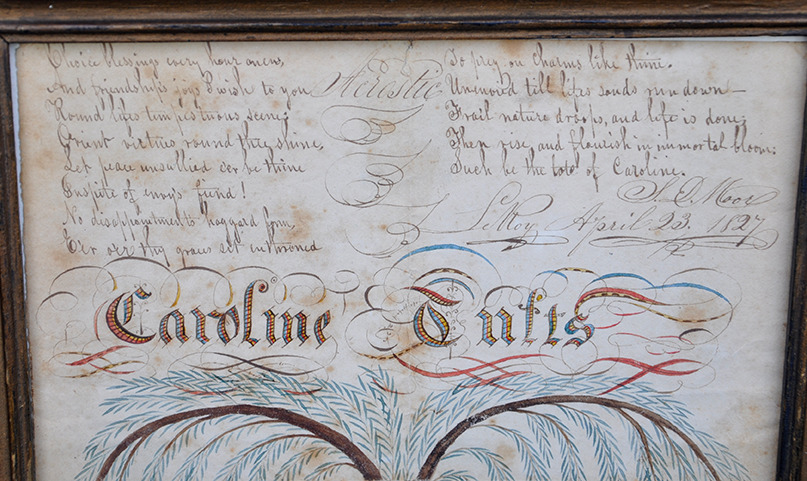 Choice blessings every hour anew,
And friendships joys I wish to you
Round lifes tempestuous scene;
Orient virtues round thee shine,
Let peace unsullied oer be thine
Inspite of envys fiend!
No disappointments haggard form,
Eer oer thy graces set inthroned
Acrostic
To prey on charms like thine.
Unmovd till lifes sands run down—
Frail nature droops, and life is done;
Then rise, and flourish in immortal bloom;
Such be the total of Caroline.
S. D. Moor
LeRoy April 23. 1827
Caroline Tufts